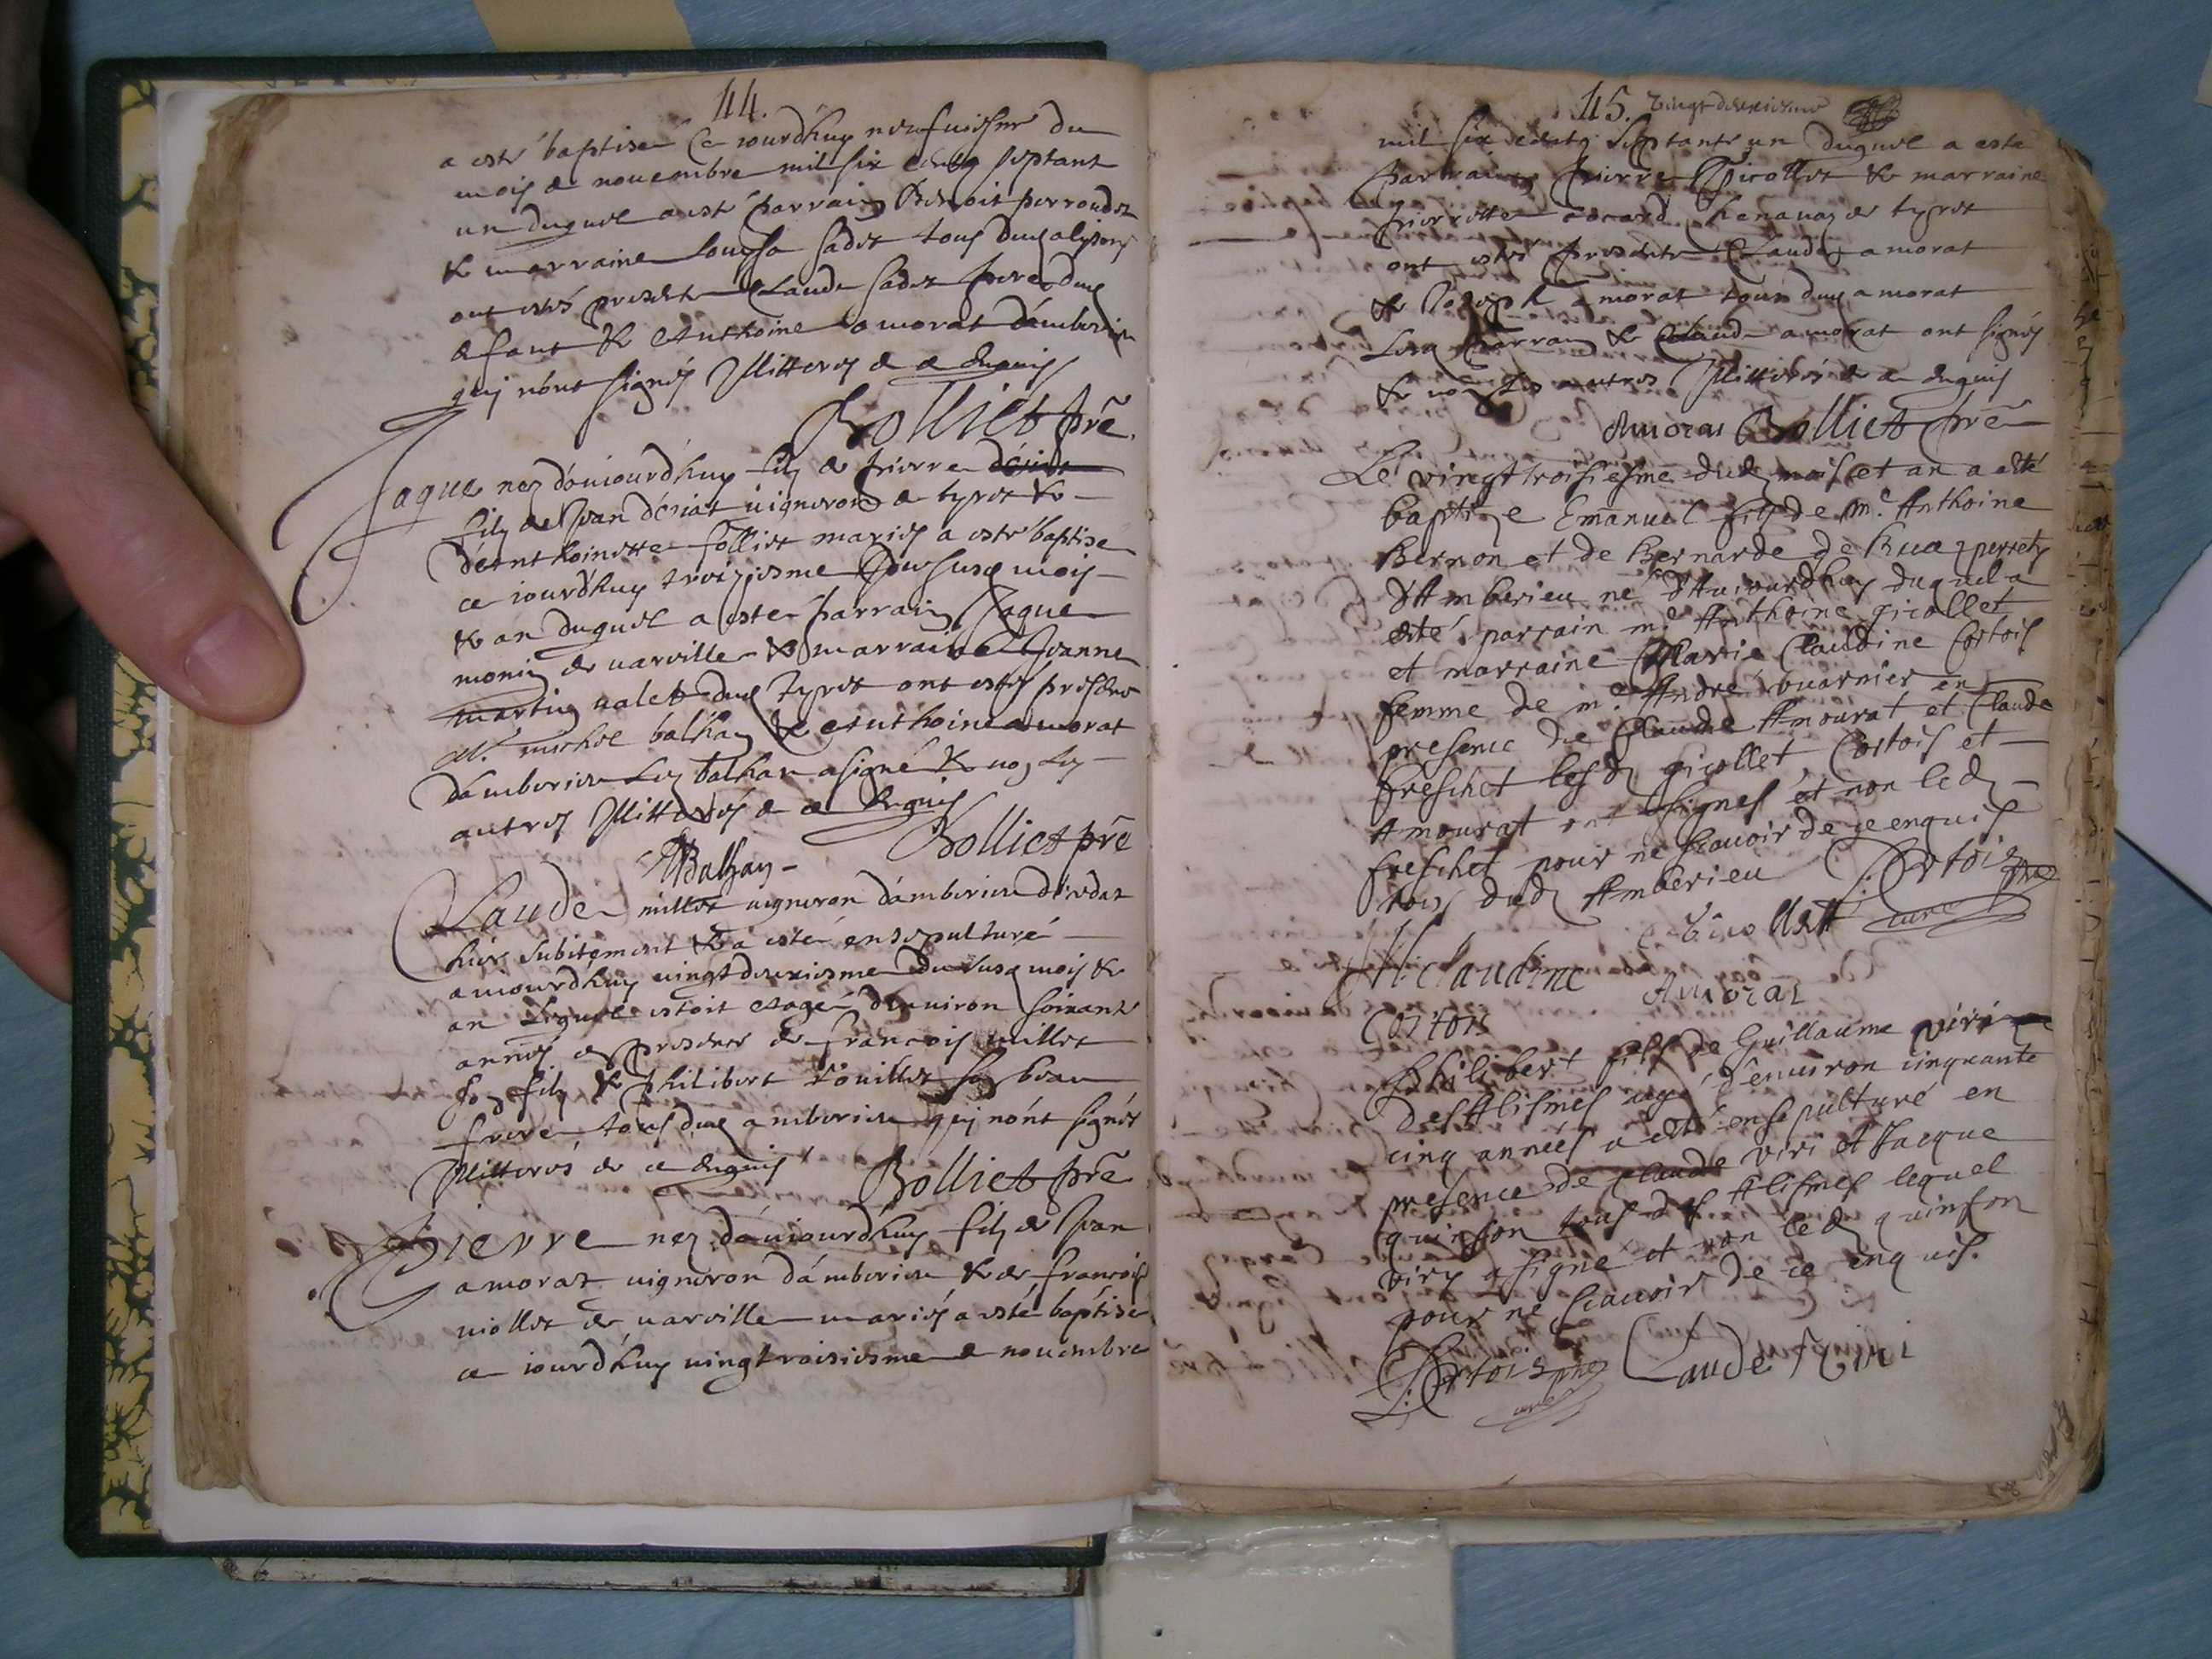 44.
a esté baptisé ce iourdhuy neufuiesme du
mois de nouembre mil six centz septant
un duquel a esté parrain Benoit perroudet
& marraine Louyse sadet tous dud
ont estés presents Claude sadet pere dud
efant & Anthoine amorat dámberieu
qui nónt signés Illitterés de ce enquis
Bolliet pre
Jaque nez dóuiourdhuy filz de pierre
filz de Jean dériat uigneron de tyret &
dé anthoinette folliet mariés a esté baptisé
ce iourdhuy troizjesme susd mois
& an duquel a esté parrain Jaque
monin de uaruille & marraine Jeanne
martin ualet dud tyret ont estés presents
M. michel balhan & Anthoine amorat
dámberieu led balhan a signé & non les
autres Illitterés de ce enquis
Bolliet pre
MBalhan
Claude millet uigneron dámberieu décédat
hier subitement & a esté ensepulturé
auiourdhuy uingt deuxiesme du susd mois &
an Lequel estoit eagé denuiron soixante
années es presences de francois millet
son filz & philibert rouillet son beau
frere tous dud amberieu qui nónt signés
Illitterés de ce enquis Bolliet pre
Pierre nez dáuiourdhuy filz de Jean
amorat uigneron dámberieu & de francoise
uiollet de uaruille mariés a esté baptisé
ce iourdhuy uingt troisiesme de nouembre
45. uingt deuxiesme
mil six centz septante un duquel a esté
parrain pierre Picollet & marraine
pierrette cocard de tyret
ont estés presents Claude amorat
& Joseph amorat tous dud amorat
Lesd parrain & Claude amorat ont signés
& non les autres Illitterés de ce enquis
Amorat Bolliet pre
Le vingt troisiesme dud mois et an a esté
baptize Emanuel filz de mr. Anthoine
Bernon et de Bernarde de Bue
d'Amberieu né d'Auiourdhuy duquel a
esté parrain mr. Anthoine picollet
et marraine Marie Claudine Cortois
femme de mr. André ouarnier en
presence de Claude Amourat et Claude
freschet lesd picollet, Cortois et
Amourat ont signés et non led
freschet pour ne scauoir de ce enquis
tous dud Amberieu Cortois pre
curé
Picollet
M: Claudine
Amorat
Cortois
Philibert fils de Guillaume viri
des Alismes agé d'enuiron cinquante
cinq années a esté ensepulturé en
presence de Claude viri et Jacque
quinson tous des Alismes lequel
viri a signe et non led quinson
pour ne scauoir de ce enquis.
Cortois pre Claude Viri
curé